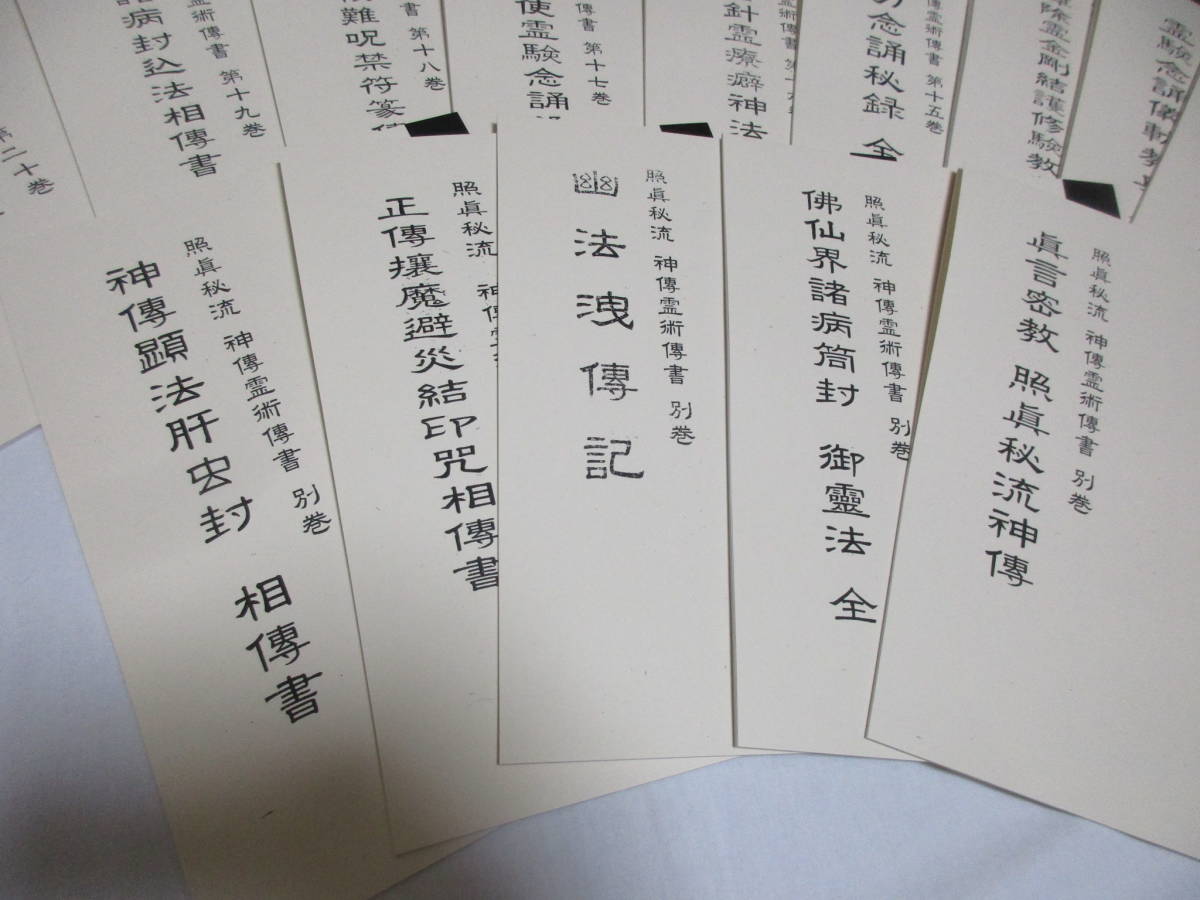 霊験念誦儀軌教
除霊金剛結護修験教
術傳書 第十五巻
念誦秘録 全
霊術傳書 第十六巻
針霊療癖神法
傳書 第十七巻
使霊験念誦
書 第十八巻
難呪禁符篆
霊術傳書 第十九巻
病封込法相傳書
第二十巻
照眞秘流 神傳霊術傳書 別巻
眞言密教 照眞秘流神傳
照眞秘流 神傳霊術傳書 別巻
佛仙界諸病筒封 御靈法 全
照眞秘流 神傳霊術傳書 別巻
幽法洩傳記
照眞秘流 神傳霊
正傳攘魔避災結印咒相傳書
照眞秘流 神傳霊術傳書 別巻
神傳顕法肝虫封 相傳書